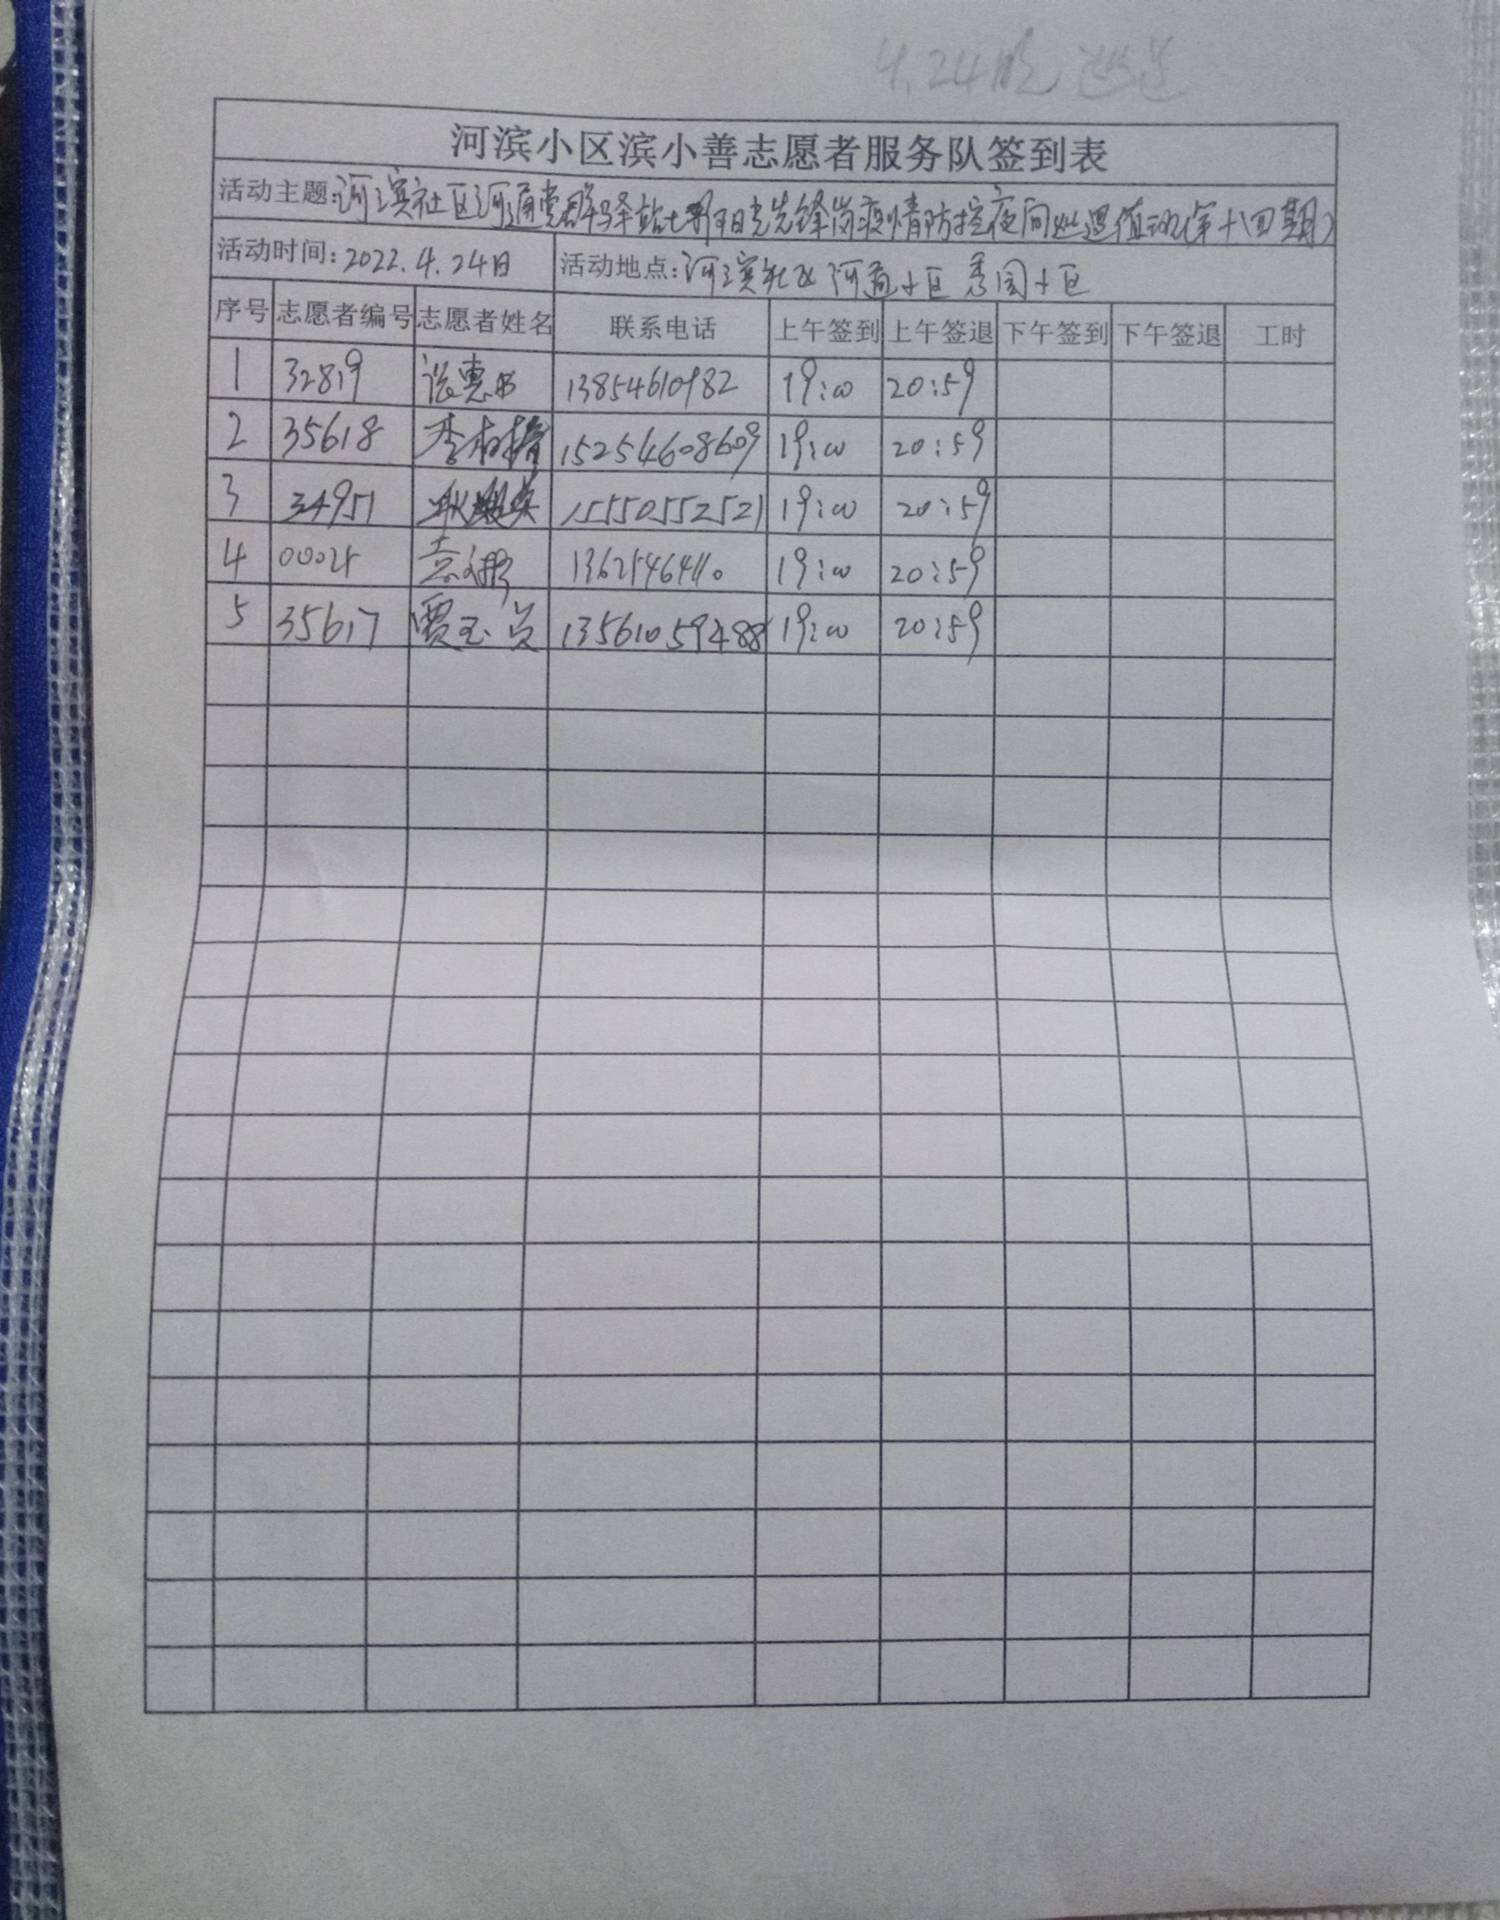 4.24晚 巡逻
河滨小区滨小善志愿者服务队签到表
活动主题:河滨社区河通党群驿站七彩阳光先锋岗疫情防控夜间巡逻值动(第十四期)
活动时间:2022.4.24日 活动地点:河滨社区 河通小区 秀园小区
序号 志愿者编号 志愿者姓名 联系电话 上午签到 上午签退 下午签到 下午签退 工时
1 32819 13854610982 19:00 20:59
2 35618 李 15254608609 19:00 20:59
3 34951 15550552521 19:00 20:59
4 袁 19:00 20:59
5 35617 贾玉 13561059488 19:00 20:59